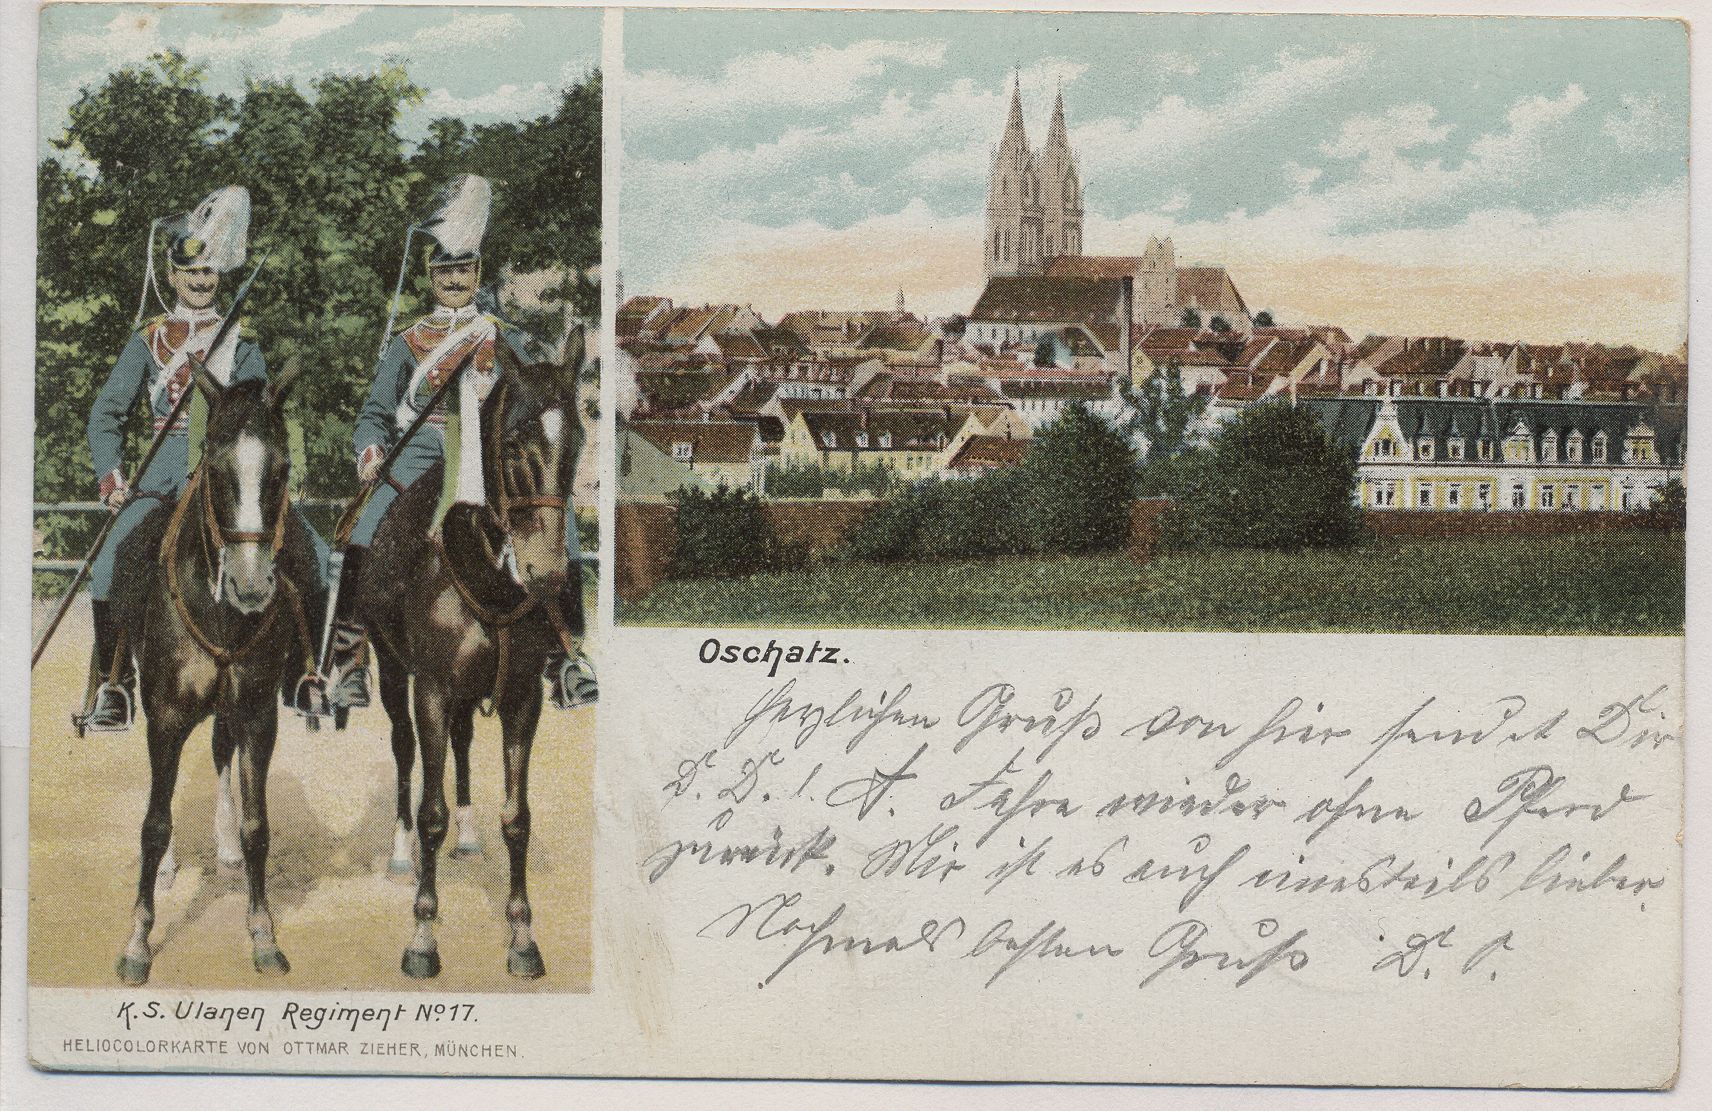 Oschatz.
Herzlichen Gruß von hier sendet Dir
D. D. l. A. Fahre wieder ohne Pferd
zurück. Mir ist es auch einesteils lieber.
Nochmals besten Gruß D.
K. S. Ulanen Regiment No. 17.
HELIOCOLORKARTE VON OTTMAR ZIEHER, MÜNCHEN.